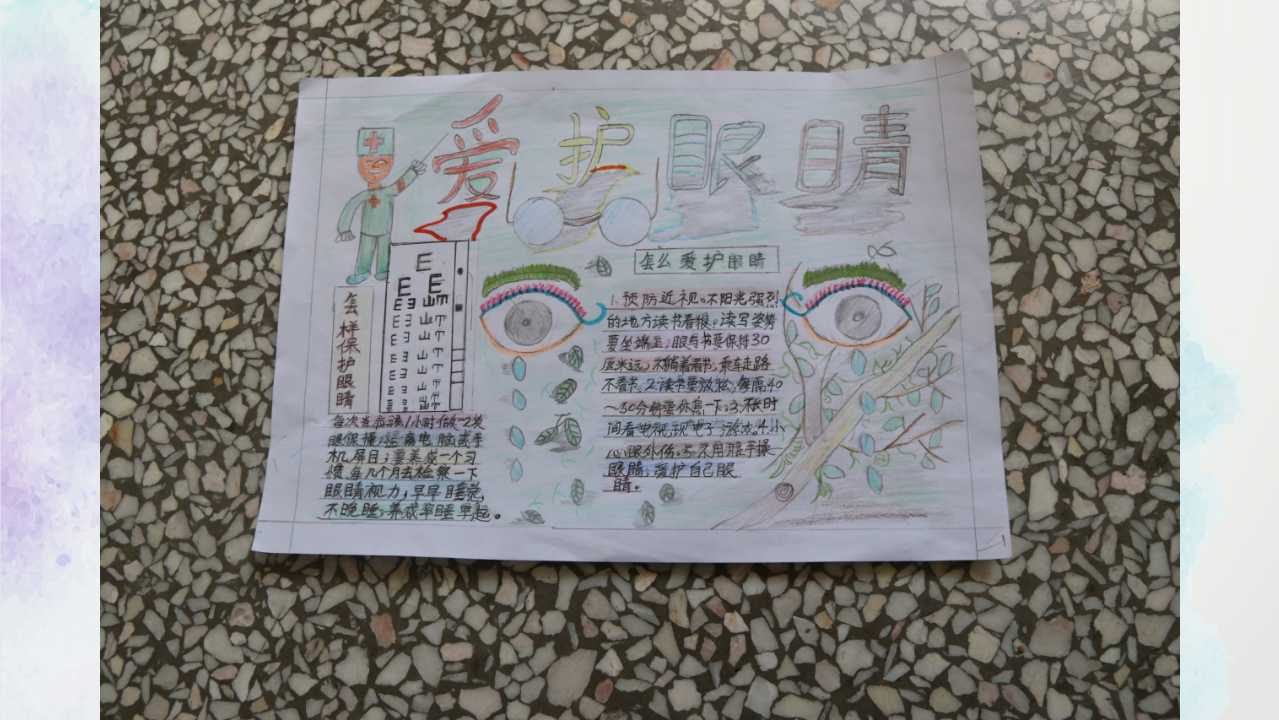 爱护眼睛
E
E E
怎样保护眼睛
怎么爱护眼睛
1.预防近视。不阳光强烈
的地方读书看报。读写姿势
要坐端正,眼与书要保持30
厘米远,不躺着看书,乘车走路
不看书。2.读书要放松,每隔40
~50分钟要休息一下;3.不长时
间看电视,玩电子游戏。4.小
心眼外伤;5.不用脏手揉
眼睛,爱护自己眼
睛。
1小时做
眼保操;远离电脑或手
机屏目;要养成一个习
惯,每几个月去检察一下
眼睛视力,早早睡觉,
不晚睡,养成早睡早起。